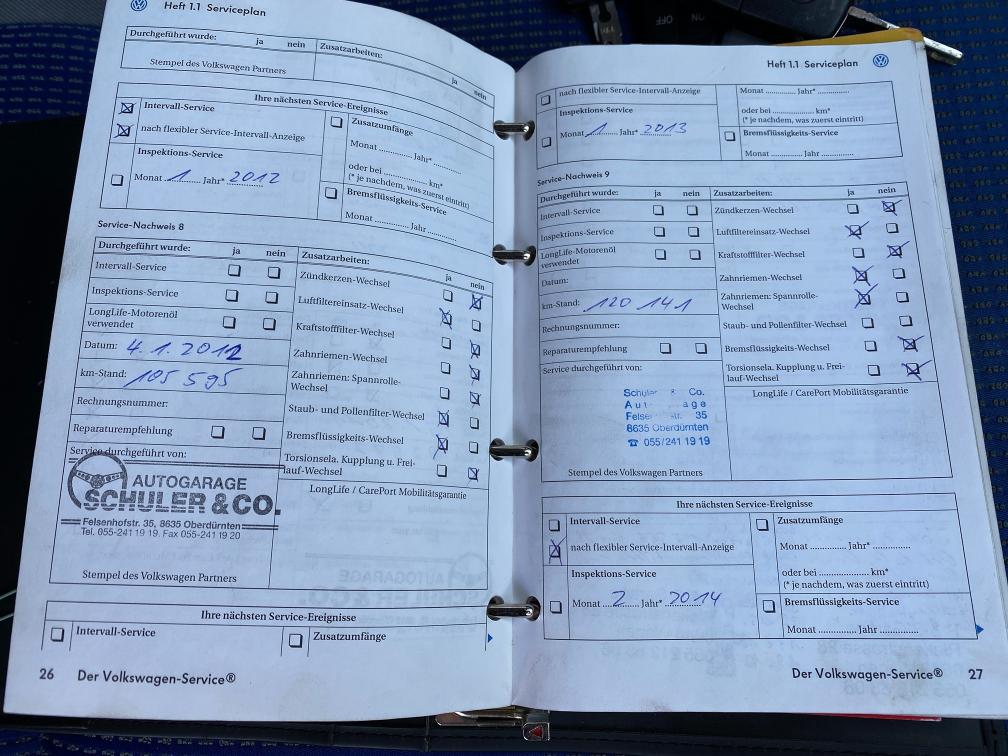 Heft 1.1 Serviceplan
Durchgeführt wurde: ja nein Zusatzarbeiten: ja nein
Stempel des Volkswagen Partners
Ihre nächsten Service-Ereignisse
Intervall-Service
nach flexibler Service-Intervall-Anzeige
Inspektions-Service
Monat 1 Jahr* 2012
Zusatzumfänge
Monat ............ Jahr* ............
oder bei ............ km*
(* je nachdem, was zuerst eintritt)
Bremsflüssigkeits-Service
Monat ............ Jahr ............
Service-Nachweis 8
Durchgeführt wurde: ja nein
Intervall-Service
Inspektions-Service
LongLife-Motorenöl
verwendet
Datum: 4.1.2012
km-Stand: 105 595
Rechnungsnummer:
Reparaturempfehlung
Service durchgeführt von:
AUTOGARAGE
SCHULER & CO.
Felsenhofstr. 35, 8635 Oberdürnten
Tel. 055-241 19 19. Fax 055-241 19 20
Stempel des Volkswagen Partners
Zusatzarbeiten: ja nein
Zündkerzen-Wechsel
Luftfiltereinsatz-Wechsel
Kraftstofffilter-Wechsel
Zahnriemen-Wechsel
Zahnriemen: Spannrolle-
Wechsel
Staub- und Pollenfilter-Wechsel
Bremsflüssigkeits-Wechsel
Torsionsela. Kupplung u. Frei-
lauf-Wechsel
LongLife / CarePort Mobilitätsgarantie
Ihre nächsten Service-Ereignisse
Intervall-Service
Zusatzumfänge
26 Der Volkswagen-Service®
Heft 1.1 Serviceplan
nach flexibler Service-Intervall-Anzeige
Inspektions-Service
Monat 1 Jahr* 2013
Monat ............ Jahr* ............
oder bei ............ km*
(* je nachdem, was zuerst eintritt)
Bremsflüssigkeits-Service
Monat ............ Jahr ............
Service-Nachweis 9
Durchgeführt wurde: ja nein
Intervall-Service
Inspektions-Service
LongLife-Motorenöl
verwendet
Datum:
km-Stand: 120 141
Rechnungsnummer:
Reparaturempfehlung
Service durchgeführt von:
Co.
35
8635 Oberdürnten
☎ 055/241 19 19
Stempel des Volkswagen Partners
Zusatzarbeiten: ja nein
Zündkerzen-Wechsel
Luftfiltereinsatz-Wechsel
Kraftstofffilter-Wechsel
Zahnriemen-Wechsel
Zahnriemen: Spannrolle-
Wechsel
Staub- und Pollenfilter-Wechsel
Bremsflüssigkeits-Wechsel
Torsionsela. Kupplung u. Frei-
lauf-Wechsel
LongLife / CarePort Mobilitätsgarantie
Ihre nächsten Service-Ereignisse
Intervall-Service
nach flexibler Service-Intervall-Anzeige
Inspektions-Service
Monat 2 Jahr* 2014
Zusatzumfänge
Monat ............ Jahr* ............
oder bei ............ km*
(* je nachdem, was zuerst eintritt)
Bremsflüssigkeits-Service
Monat ............ Jahr ............
Der Volkswagen-Service® 27
ON
OFF